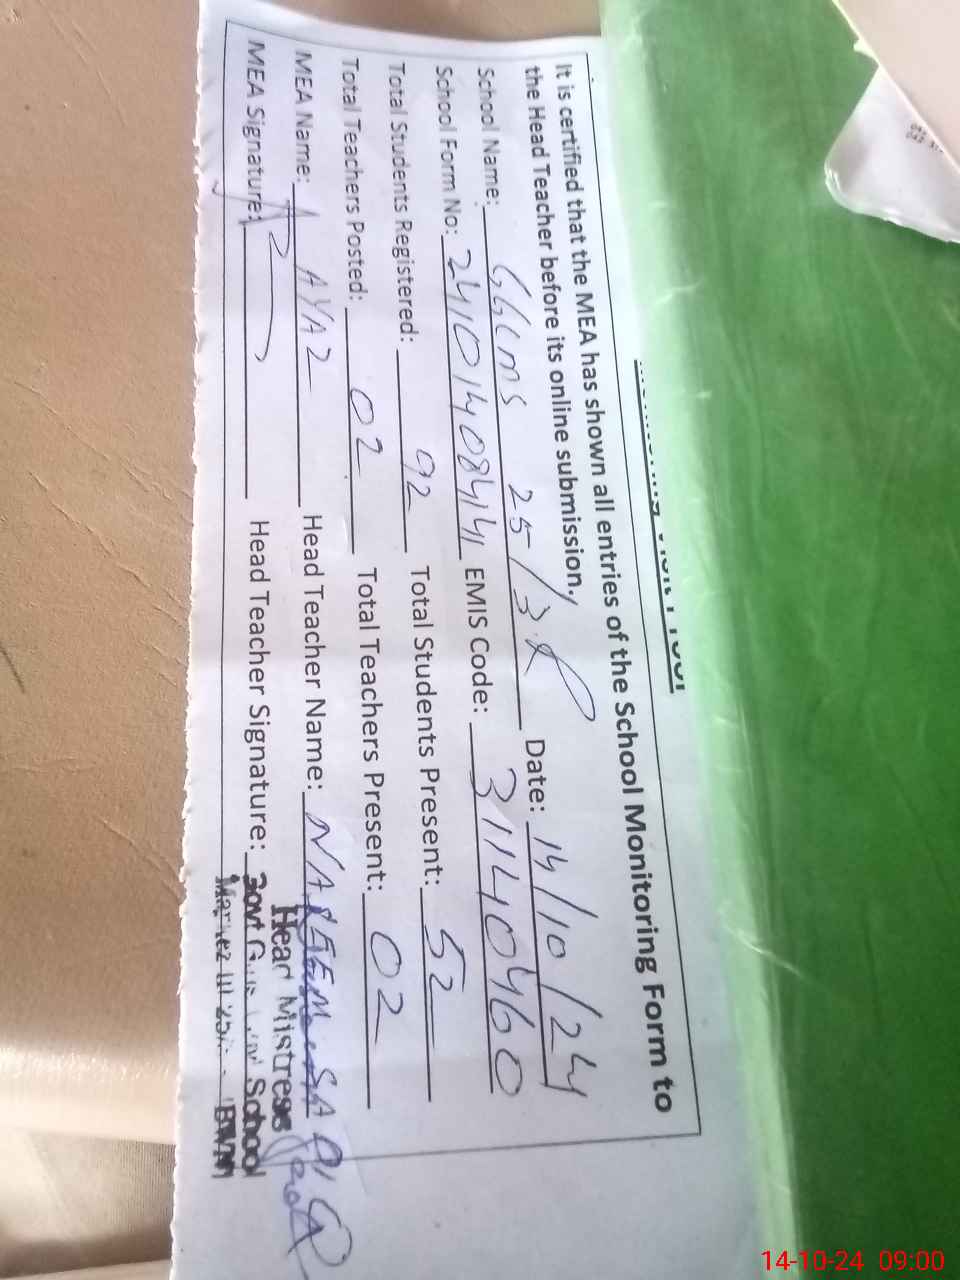 It is certified that the MEA has shown all entries of the School Monitoring Form to
the Head Teacher before its online submission.
School Name: GGCMS 25/3.R Date: 14/10/24
School Form No: EMIS Code: 31140460
Total Students Registered: 92 Total Students Present: 52
Total Teachers Posted: 02 Total Teachers Present: 02
MEA Name: AYAZ Head Teacher Name:
MEA Signature: Head Teacher Signature:
Head Mistress
School
14-10-24 09:00